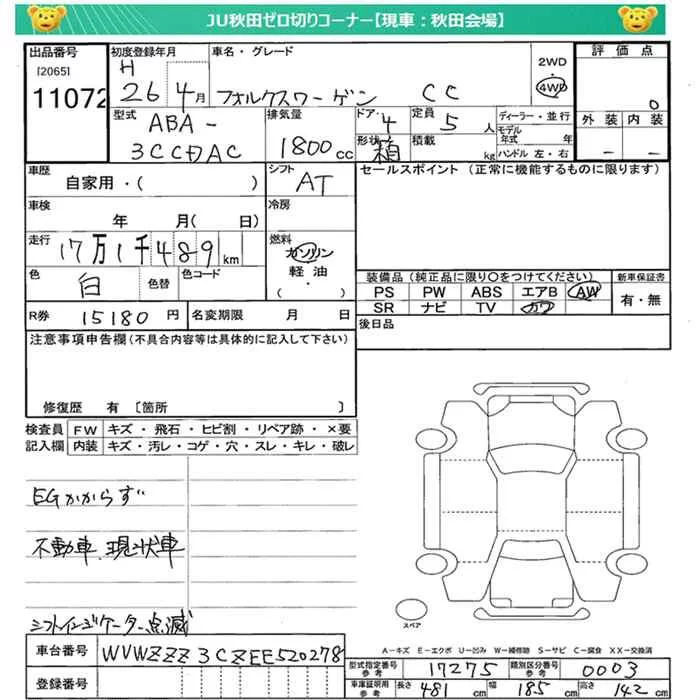 JU秋田ゼロ切りコーナー【現車：秋田会場】
出品番号 初度登録年月 車名・グレード 2WD 評価点
[2065] H 26 4月 フォルクスワーゲン CC 4WD 0
11072
型式 排気量 ドア・ 4 定員 5 人 ディーラー・並行 外装 内装
ABA-3CCDAC 1800cc 形状 箱 積載 kg モデル年式 年 － －
ハンドル 左・右
車歴 シフト セールスポイント (正常に機能するものに限ります)
自家用・( ) AT
車検 冷房
年 月( 日)
走行 燃料
17万1千489km ガソリン
軽油
・
( )
色 白 色替 色コード
装備品 (純正品に限り○をつけてください) 新車保証書
PS PW ABS エアB AW 有・無
SR ナビ TV カワ
R券 15180 円 名変期限 月 日 後日品
注意事項申告欄(不具合内容等は具体的に記入して下さい)
修復歴 有 〔箇所 〕
検査員 FW キズ・飛石・ヒビ割・リペア跡・×要
記入欄 内装 キズ・汚レ・コゲ・穴・スレ・キレ・破レ
EGかからず
不動車、現状車
シフトインジケーター点滅
スペア
A－キズ E－エクボ U－凹み W－補修跡 S－サビ C－腐食 XX－交換済
車台番号 WVWZZZ3CZEE520278
型式指定番号 参考 17275 類別区分番号 参考 0003
登録番号
車庫証明用 参考 長さ 481 cm 幅 185 cm 高さ 142 cm